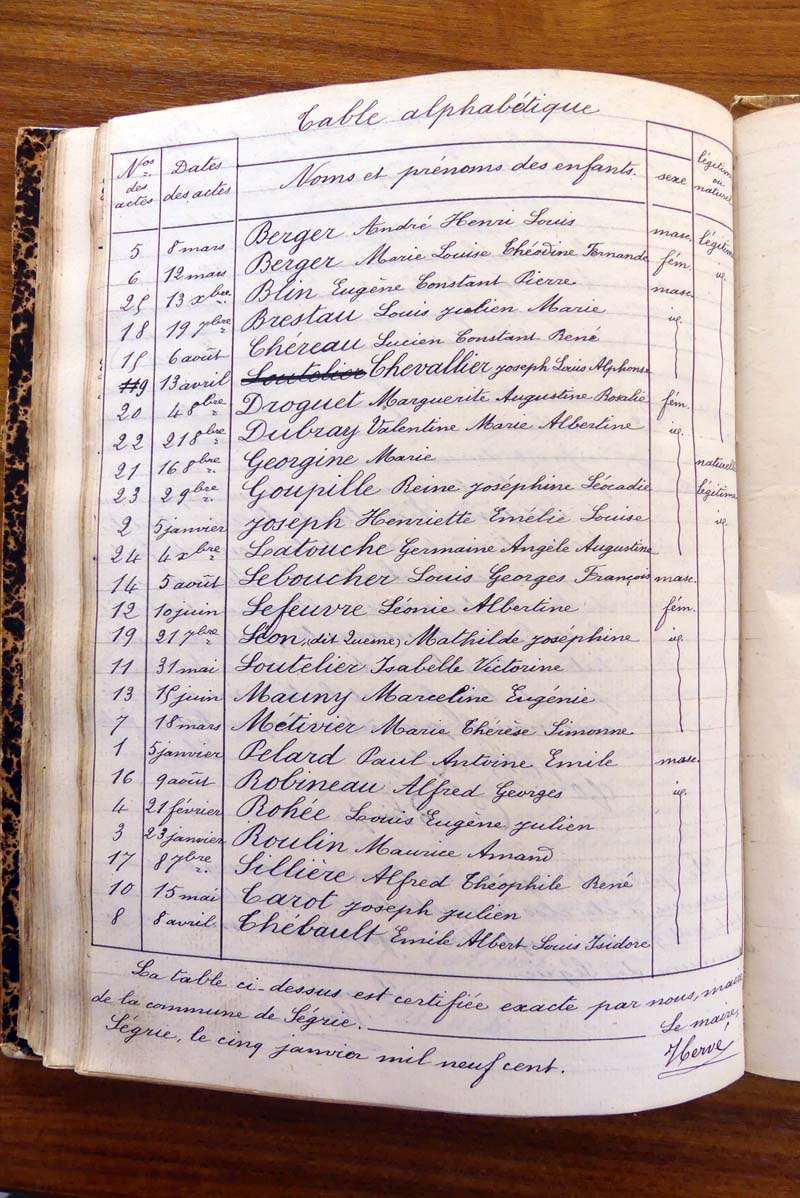 Table alphabétique
Nos des actes Dates des actes Noms et prénoms des enfants. sexe légitime ou naturel
5 8 mars Berger André Henri Louis masc. légitime
6 12 mars Berger Marie Louise Théodine Fernande fém. id.
25 13 xbre Blin Eugène Constant Pierre masc.
18 19 7bre Brestau Louis Julien Marie id.
15 6 août Chéreau Lucien Constant René
9 13 avril Loutelier Chevallier Joseph Louis Alphonse
20 4 8bre Droguet Marguerite Augustine Rosalie fém.
22 21 8bre Dubray Valentine Marie Albertine id.
21 16 8bre Georgine Marie naturelle
23 2 9bre Goupille Reine Joséphine Léocadie légitime
2 5 janvier Joseph Henriette Emélie Louise id.
24 4 xbre Latouche Germaine Angèle Augustine
14 5 août Leboucher Louis Georges François masc.
12 10 juin Lefeuvre Léonie Albertine fém.
19 21 7bre Léon, (dit Queme) Mathilde Joséphine id.
11 31 mai Loutelier Isabelle Victorine
13 15 juin Mauny Marceline Eugénie
7 18 mars Metivier Marie Thérèse Simonne
1 5 janvier Pelard Paul Antoine Emile masc.
16 9 août Robineau Alfred Georges id.
4 21 février Rohée Louis Eugène Julien
3 23 janvier Roulin Maurice Amand
17 8 7bre Sillière Alfred Théophile René
10 15 mai Tarot Joseph Julien
8 8 avril Thébault Emile Albert Louis Isidore
La table ci-dessus est certifiée exacte par nous, maire
de la commune de Ségrie.
Ségrie, le cinq janvier mil neuf cent.
Le maire,
Hervé